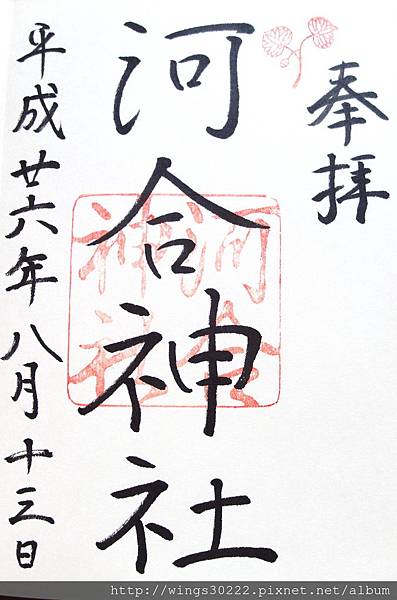 奉拝
河合神社
河合神社
平成廿六年八月十三日
http://wings30222.pixnet.net/album